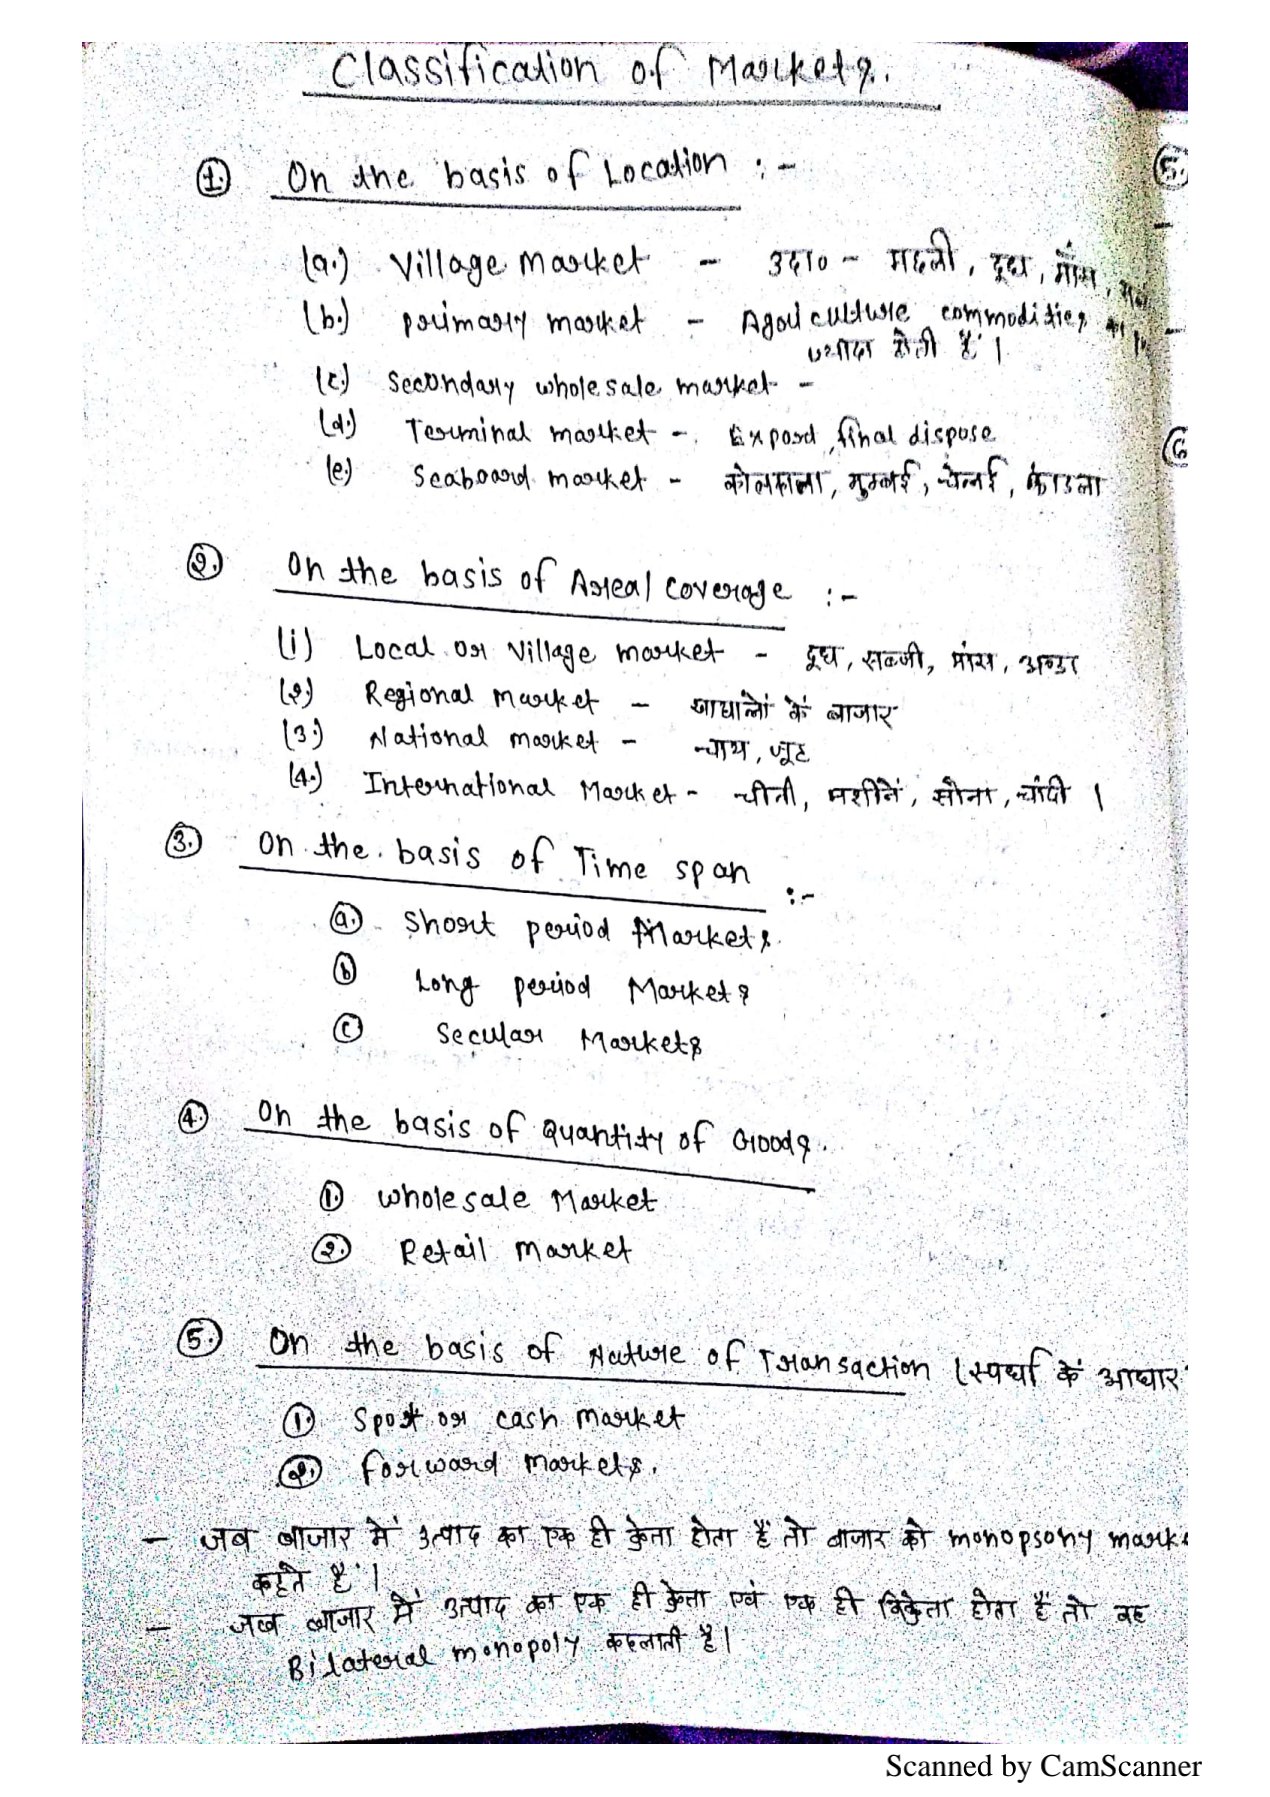 Classification of Markets.
1. On the basis of Location :-
(a.) Village market - उदा० - मछली, दूध, माँस,
(b.) primary market - Agriculture commodities
ज्यादा होती हैं।
(c.) Secondary wholesale market -
(d.) Terminal market - Export, final dispose
(e.) Seaboard market - कोलकाता, मुम्बई, चेन्नई, कांडला
2. On the basis of Areal coverage :-
(i) Local or village market - दूध, सब्जी, मांस, अण्डा
(2.) Regional market - खाद्यान्नों के बाजार
(3.) National market - चाय, जूट
(4.) International Market - चीनी, मशीनें, सोना, चांदी।
3. On the basis of Time span :-
a. Short period Markets.
b Long period Markets
c Secular Markets
4. On the basis of Quantity of Goods.
1. Wholesale Market
2. Retail market
5. On the basis of Nature of Transaction (स्पर्धा के आधार
1. Spot or cash market
2. forward markets.
- जब बाजार में उत्पाद का एक ही क्रेता होता हैं तो बाजार को monopsony marke
कहते हैं।
- जब बाजार में उत्पाद का एक ही क्रेता एवं एक ही विक्रेता होता हैं तो वह
Bilateral monopoly कहलाती हैं।
5.
6
Scanned by CamScanner